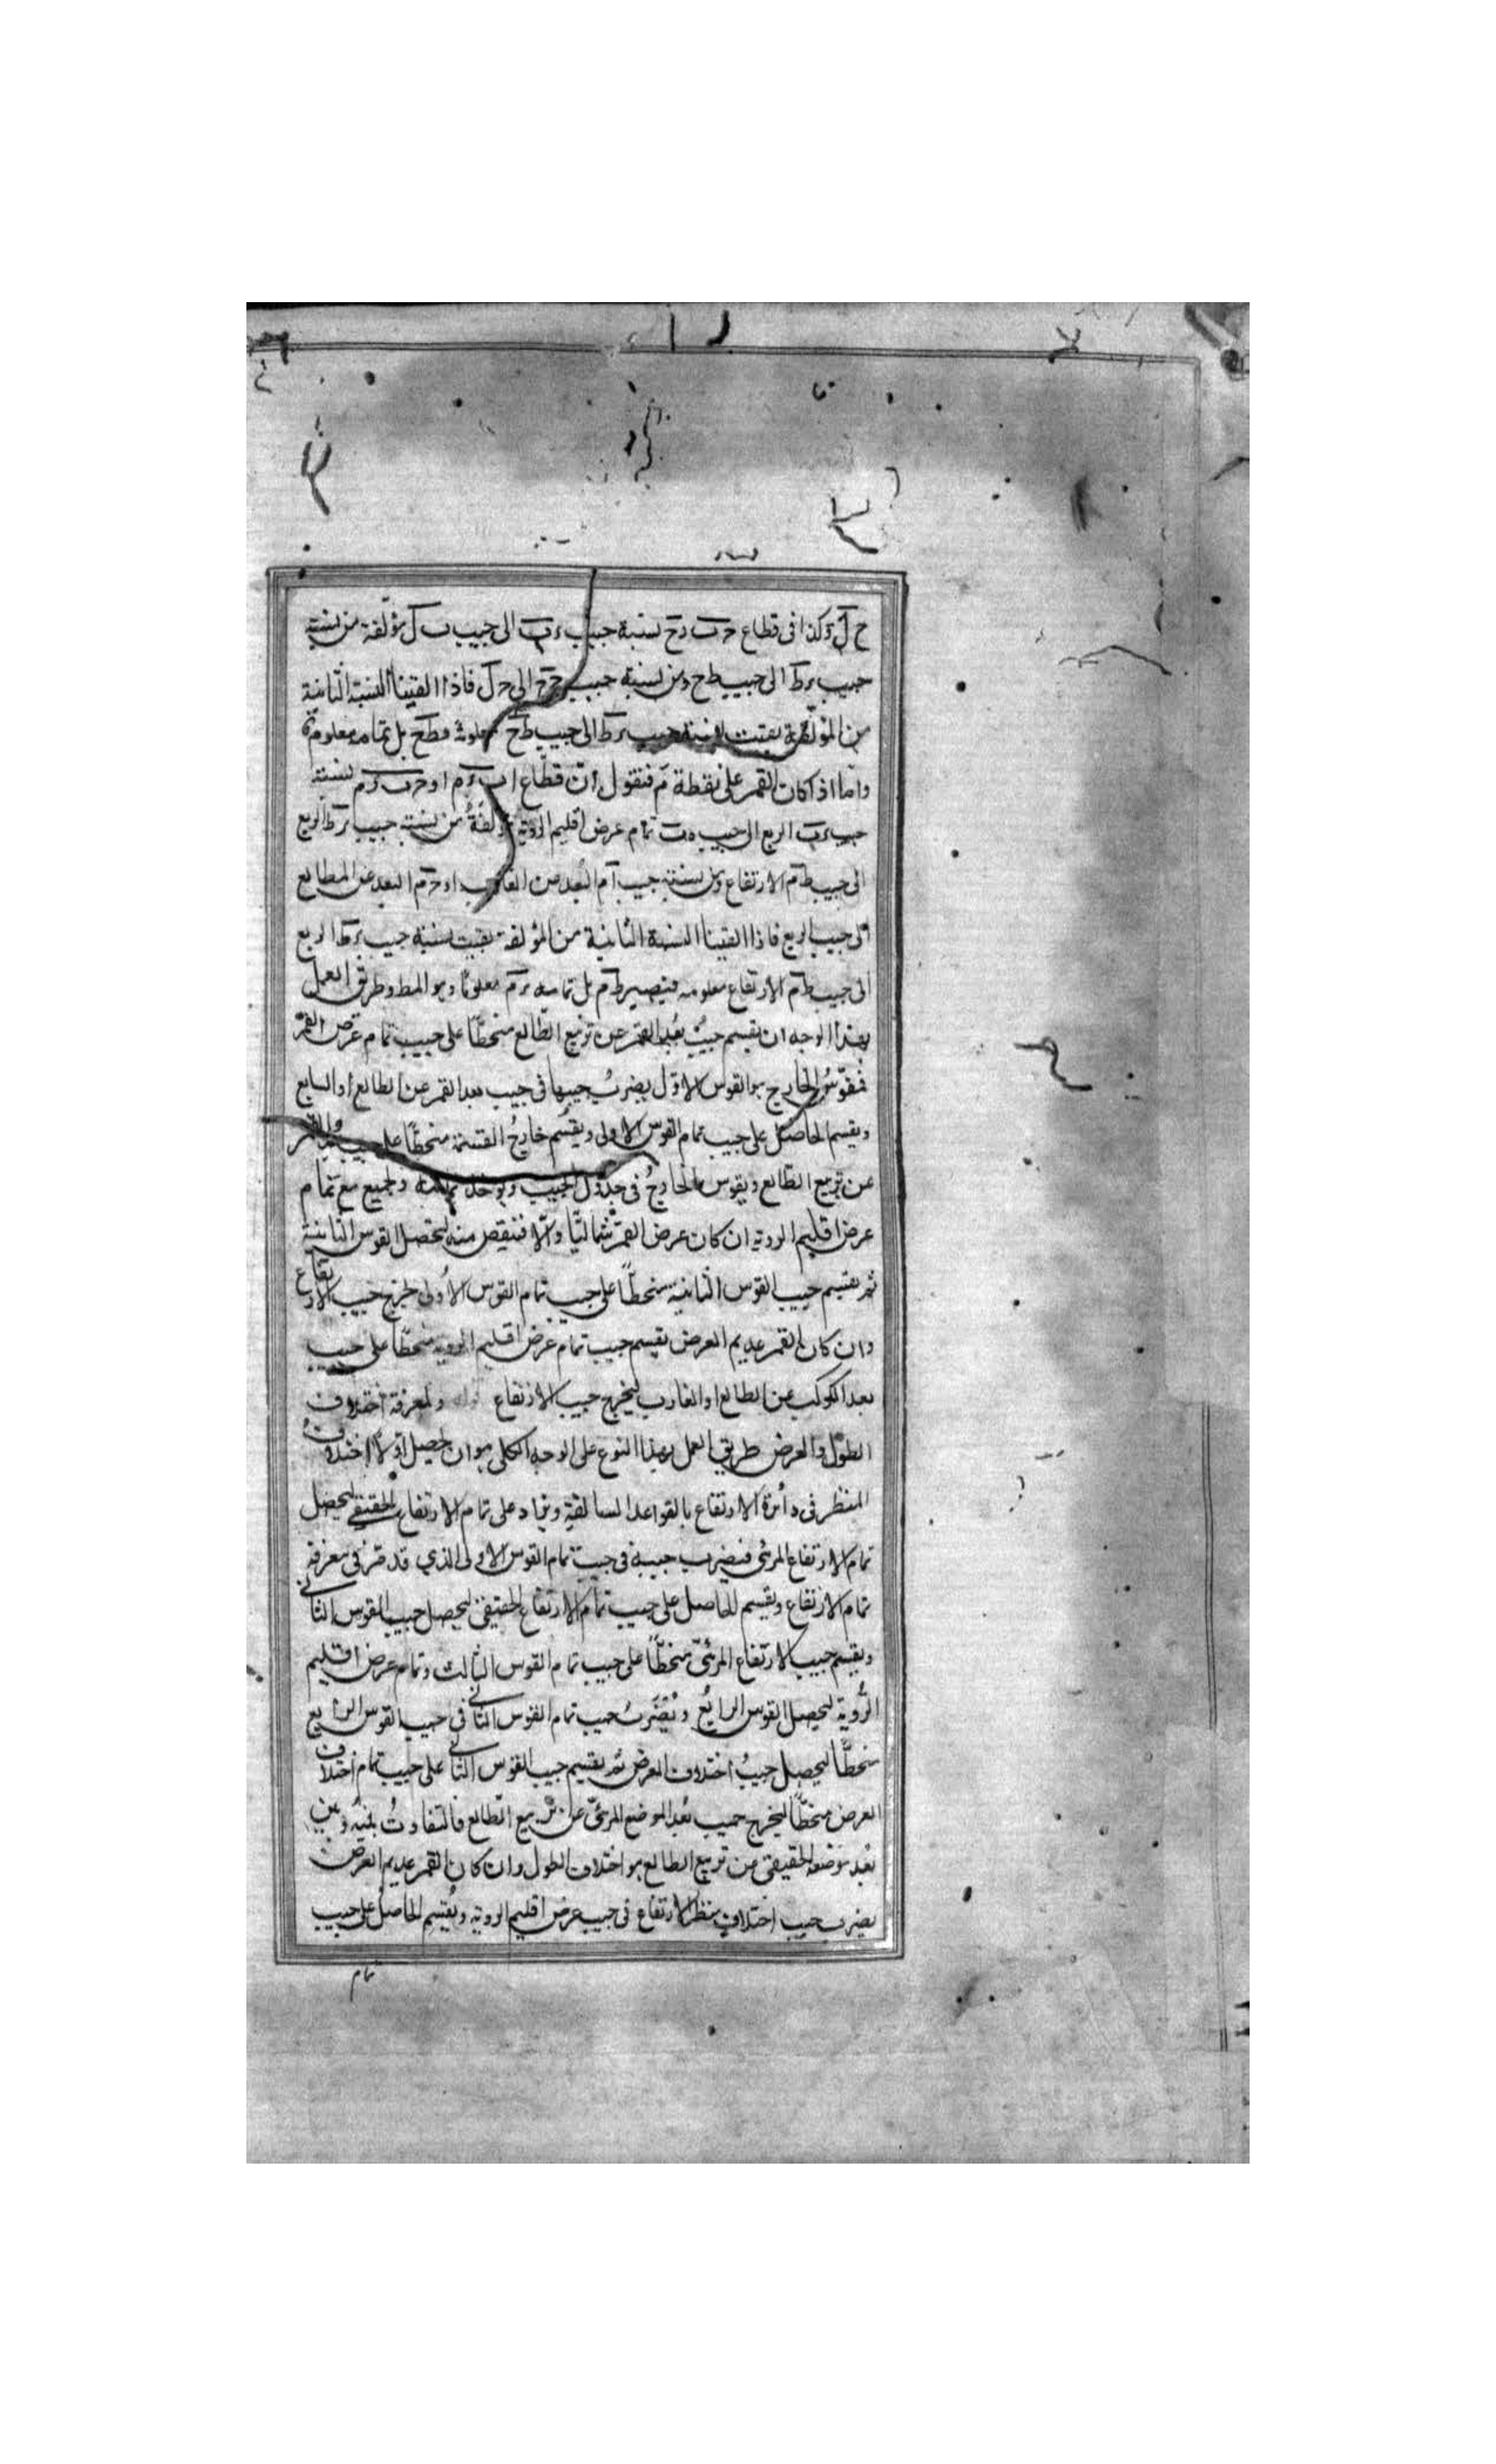 ح ل وكذا فى قطاع حرب دح نسبة جيب رب الى جيب ب ل مؤلفة من نسبة
جيب رط الى جيب طح ومن نسبة جيب حح الى ح ل فاذا القينا النسبة الثانية
من المؤلفة بقيت نسبة جيب رط الى جيب طح معلومة فطح بل تمامه معلومة
واما اذا كان القمر على نقطة م فنقول ان قطاع اب رم او حرب رم نسبة
جيب رب الربع الى جيب ه ب تمام عرض اقليم الروية مؤلفة من نسبة جيب رط الربع
الى جيب طم الارتفاع ومن نسبة جيب ام البعد من الغارب او حم البعد عن الطالع
الى جيب الربع فاذا القينا النسبة الثانية من المؤلفة بقيت نسبة جيب رط الربع
الى جيب طم الارتفاع معلومه فيصير طم بل تمامه رم معلوما وهو المط وطريق العمل
بهذا الوجه ان يقسم جيب بعد القمر عن تربيع الطالع منحطا على جيب تمام عرض القمر
فقوس الخارج هو القوس الاول يضرب جيبها فى جيب بعد القمر عن الطالع او السابع
ويقسم الحاصل على جيب تمام القوس الاولى ويقسم خارج القسمة منحطا على جيب بعد القمر
عن تربيع الطالع ويقوس الخارج فى جدول الجيب ويؤخذ تمامه ويجمع مع تمام
عرض اقليم الروية ان كان عرض القمر شماليا والا فننقص منه ليحصل القوس الثانية
ثم يقسم جيب القوس الثانية منحطا على جيب تمام القوس الاولى ليخرج جيب الارتفاع
وان كان القمر عديم العرض يقسم جيب تمام عرض اقليم الروية منحطا على جيب
بعد الكوكب عن الطالع او الغارب ليخرج جيب الارتفاع ولمعرفة اختلاف
الطول والعرض طريق العمل بهذا النوع على الوجه الكلى هو ان يحصل اولا اختلاف
المنظر فى دائرة الارتفاع بالقواعد السالفة ويزاد على تمام الارتفاع الحقيقى ليحصل
تمام الارتفاع المرئى فيضرب جيبه فى جيب تمام القوس الاولى الذي قد مر فى معرفة
تمام الارتفاع ويقسم الحاصل على جيب تمام الارتفاع الحقيقى ليحصل جيب القوس الثانى
ويقسم جيب الارتفاع المرئى منحطا على جيب تمام القوس الثالث وتمام عرض اقليم
الروية ليحصل القوس الرابع ويضرب جيب تمام القوس الثانى فى جيب القوس الرابع
منحطا ليحصل جيب اختلاف العرض ثم يقسم جيب القوس الثانى على جيب تمام اختلاف
العرض منحطا ليخرج جيب بعد الموضع المرئى عن تربيع الطالع فالتفاوت بينه وبين
بعد موضعه الحقيقى من تربيع الطالع هو اختلاف الطول وان كان القمر عديم العرض
يضرب جيب اختلاف منظر الارتفاع فى جيب عرض اقليم الروية ويقسم الحاصل على جيب
تمام